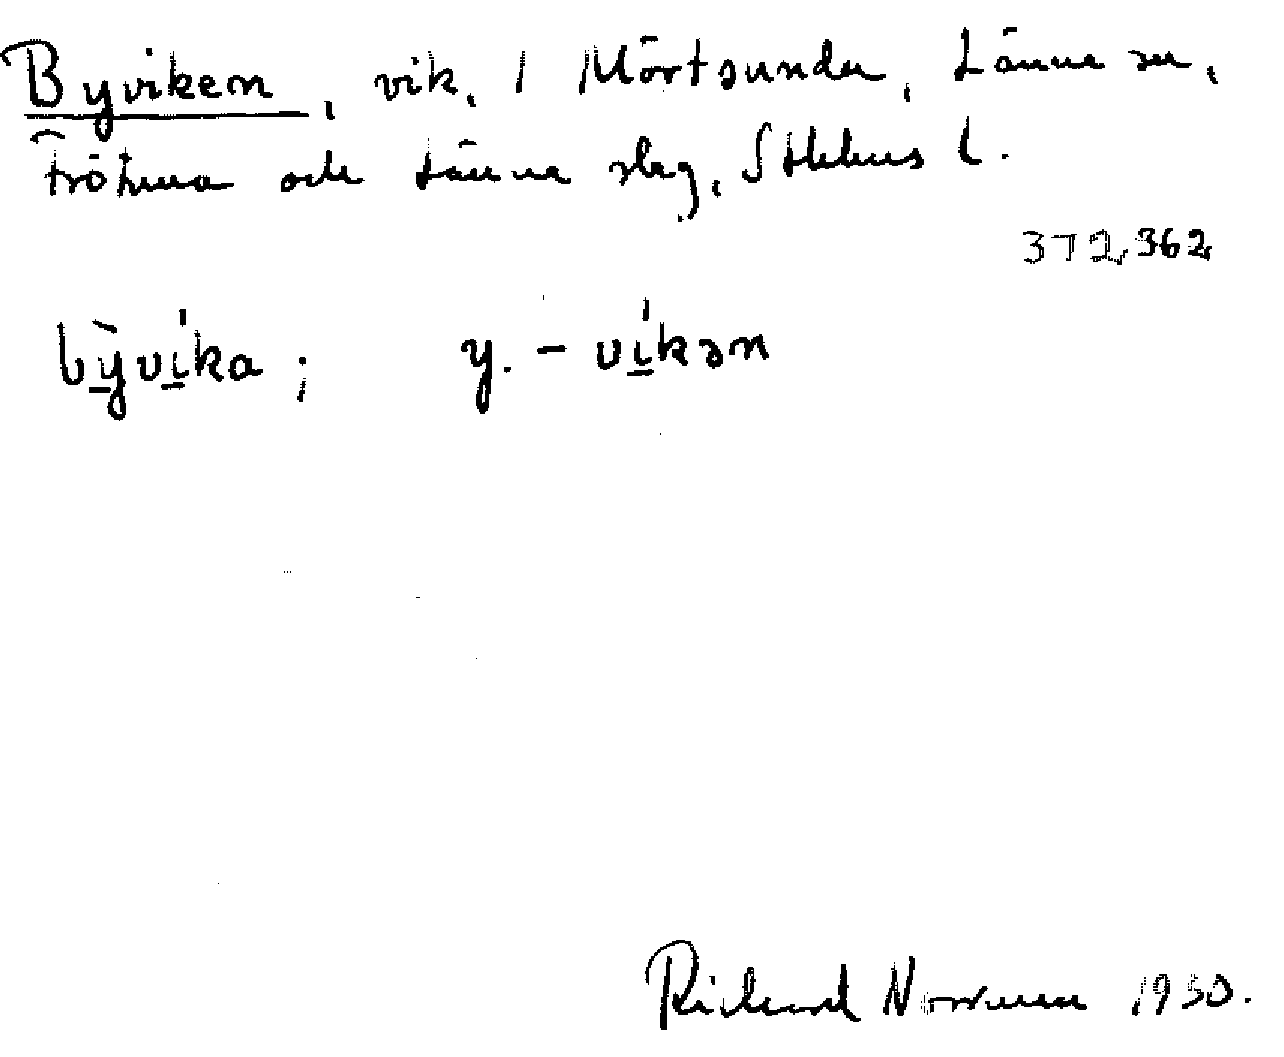 Byviken, vik, 1 Mörtsunda, Länna sn,
Frötuna och Länna slag, Sthlms l.
372,362
bỳvíka; y. - víkən
Richard Norrman 1930.